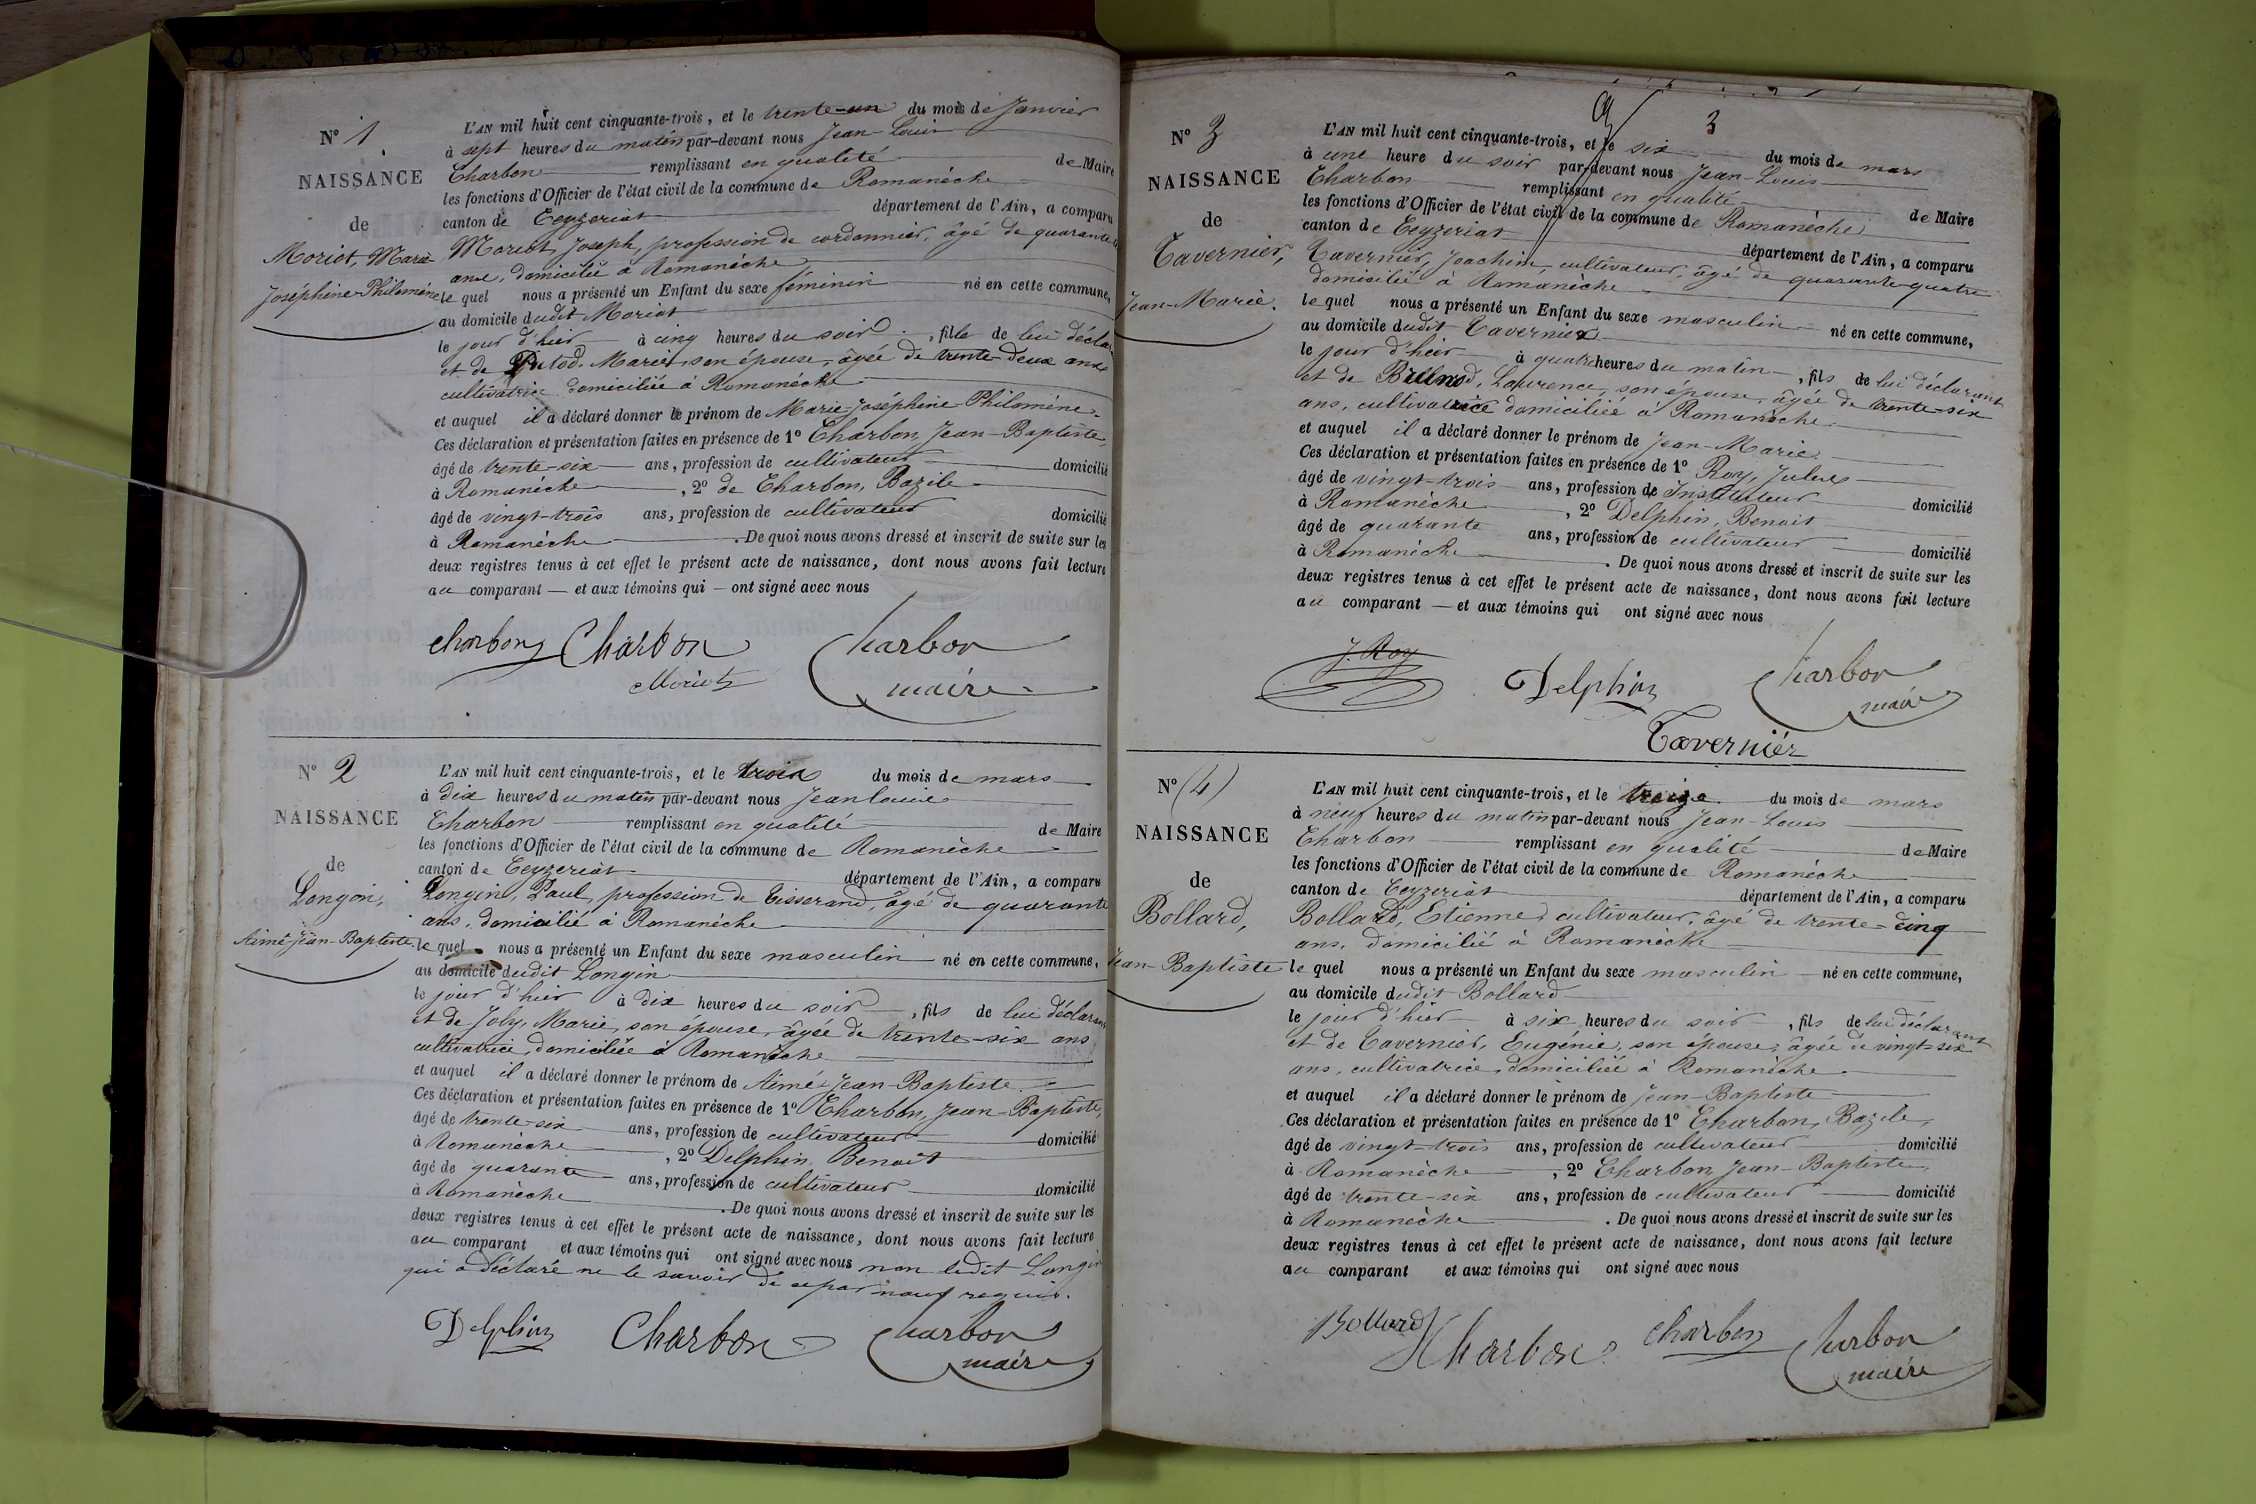 N° 1
NAISSANCE
de
Moriot, Marie-
Joséphine-Philomène
L'AN mil huit cent cinquante-trois, et le trente-un du mois de Janvier
à sept heures du matin par-devant nous Jean-Louis
Charbon remplissant en qualité de Maire
les fonctions d'Officier de l'état civil de la commune de Romanèche
canton de Ceyzeriat département de l'Ain, a comparu
Moriot, Joseph, profession de cordonnier, âgé de quarante
ans, domicilié à Romanèche
le quel nous a présenté un Enfant du sexe féminin né en cette commune,
au domicile dudit Moriot
le jour d'hier à cinq heures du soir, fille de lui déclarant
et de Marie, son épouse, âgée de trente-deux ans
cultivatrice domiciliée à Romanèche
et auquel il a déclaré donner le prénom de Marie-Joséphine-Philomène
Ces déclaration et présentation faites en présence de 1° Charbon, Jean-Baptiste
âgé de trente-six ans, profession de cultivateur domicilié
à Romanèche, 2° de Charbon, Bazile
âgé de vingt-trois ans, profession de cultivateur domicilié
à Romanèche. De quoi nous avons dressé et inscrit de suite sur les
deux registres tenus à cet effet le présent acte de naissance, dont nous avons fait lecture
au comparant — et aux témoins qui — ont signé avec nous
Charbon Charbon Charbon
Moriot maire
N° 2
NAISSANCE
de
Longin,
Aimé-Jean-Baptiste
L'AN mil huit cent cinquante-trois, et le trois du mois de mars
à dix heures du matin par-devant nous Jean louis
Charbon remplissant en qualité de Maire
les fonctions d'Officier de l'état civil de la commune de Romanèche
canton de Ceyzeriat département de l'Ain, a comparu
Longin, Paul, profession de Tisserand, âgé de quarante
ans, domicilié à Romanèche
le quel nous a présenté un Enfant du sexe masculin né en cette commune,
au domicile dudit Longin
le jour d'hier à dix heures du soir, fils de lui déclarant
et de Joly, Marie, son épouse, âgée de trente-six ans
cultivatrice, domiciliée à Romanèche
et auquel il a déclaré donner le prénom de Aimé-Jean-Baptiste
Ces déclaration et présentation faites en présence de 1° Charbon, Jean-Baptiste,
âgé de trente-six ans, profession de cultivateur domicilié
à Romanèche, 2° Delphin, Benoit
âgé de quarante ans, profession de cultivateur domicilié
à Romanèche. De quoi nous avons dressé et inscrit de suite sur les
deux registres tenus à cet effet le présent acte de naissance, dont nous avons fait lecture
au comparant et aux témoins qui ont signé avec nous non ledit Longin
qui a déclaré ne le savoir de ce par nous requis.
Delphin Charbon Charbon
maire
3
N° 3
NAISSANCE
de
Tavernier,
Jean-Marie.
L'AN mil huit cent cinquante-trois, et le six du mois de mars
à une heure du soir par-devant nous Jean-Louis
Charbon remplissant en qualité de Maire
les fonctions d'Officier de l'état civil de la commune de Romanèche
canton de Ceyzeriat département de l'Ain, a comparu
Tavernier, Joachim, cultivateur, âgé de quarante-quatre
domicilié à Romanèche
le quel nous a présenté un Enfant du sexe masculin né en cette commune,
au domicile dudit Tavernier
le jour d'hier à quatre heures du matin, fils de lui déclarant
et de Laurence, son épouse, âgée de trente-six
ans, cultivatrice domiciliée à Romanèche
et auquel il a déclaré donner le prénom de Jean-Marie
Ces déclaration et présentation faites en présence de 1° Roy, Jules
âgé de vingt-trois ans, profession de Instituteur domicilié
à Romanèche, 2° Delphin, Benoit
âgé de quarante ans, profession de cultivateur domicilié
à Romanèche. De quoi nous avons dressé et inscrit de suite sur les
deux registres tenus à cet effet le présent acte de naissance, dont nous avons fait lecture
au comparant — et aux témoins qui ont signé avec nous
J. Roy Delphin Charbon
maire
Tavernier
N° (4)
NAISSANCE
de
Bollard,
Jean-Baptiste
L'AN mil huit cent cinquante-trois, et le treize du mois de mars
à neuf heures du matin par-devant nous Jean-Louis
Charbon remplissant en qualité de Maire
les fonctions d'Officier de l'état civil de la commune de Romanèche
canton de Ceyzeriat département de l'Ain, a comparu
Bollard, Etienne, cultivateur, âgé de trente-cinq
ans, domicilié à Romanèche
le quel nous a présenté un Enfant du sexe masculin né en cette commune,
au domicile dudit Bollard
le jour d'hier à six heures du soir, fils de lui déclarant
et de Tavernier, Eugénie, son épouse, âgée de vingt-six
ans, cultivatrice, domiciliée à Romanèche
et auquel il a déclaré donner le prénom de Jean-Baptiste
Ces déclaration et présentation faites en présence de 1° Charbon, Bazile,
âgé de vingt-trois ans, profession de cultivateur domicilié
à Romanèche, 2° Charbon Jean-Baptiste,
âgé de trente-six ans, profession de cultivateur domicilié
à Romanèche. De quoi nous avons dressé et inscrit de suite sur les
deux registres tenus à cet effet le présent acte de naissance, dont nous avons fait lecture
au comparant et aux témoins qui ont signé avec nous
Bollard Charbon Charbon Charbon
maire